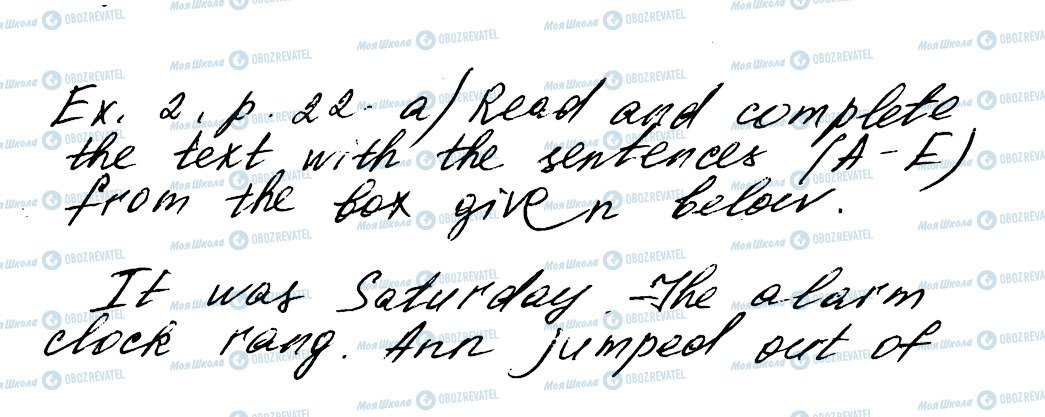 Ex. 2, p. 22. a) Read and complete
the text with the sentences (A-E)
from the box given below.
It was Saturday. The alarm
clock rang. Ann jumped out of